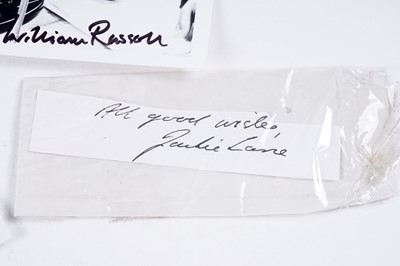 William Russell
All good wishes,
Jackie Lane